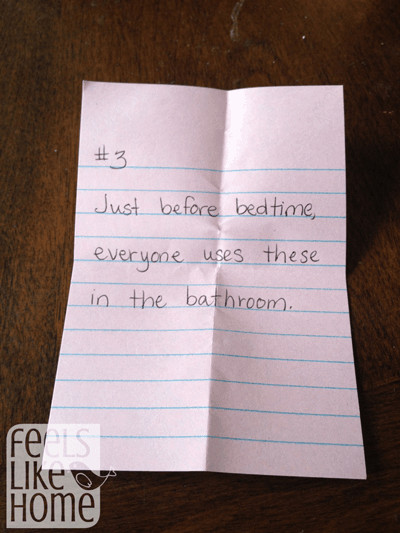 #3
Just before bedtime,
everyone uses these
in the bathroom.
FEELS
LIKE
HOME